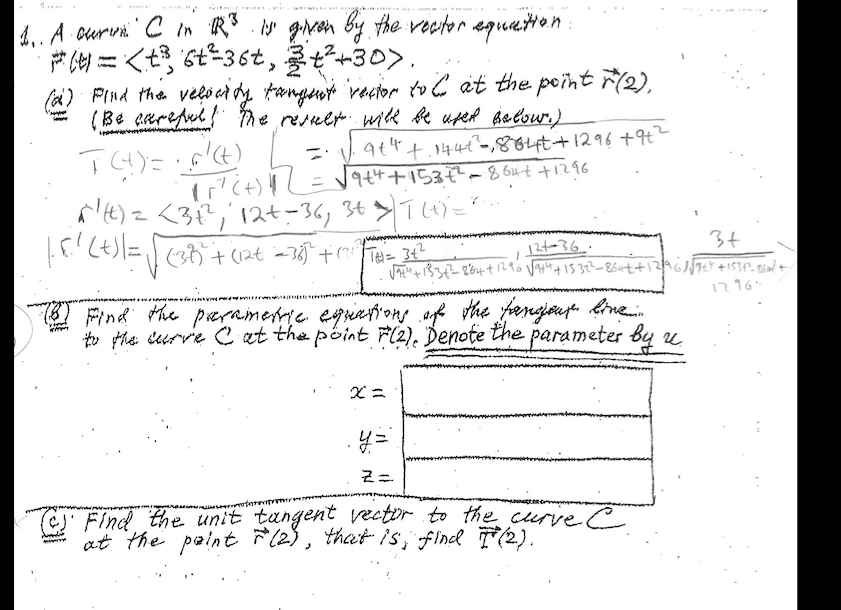 1. A curve C in ℝ³ is given by the vector equation:
r⃗(t) = <t³, 6t²-36t, 3/2 t²+30>.
(a) Find the velocity tangent vector to C at the point r⃗(2).
(Be careful! The result will be used below.)
T(t) = r'(t) / |r'(t)|
= √9t⁴ + 144t² - 864t + 1296 + 9t²
= √9t⁴ + 153t² - 864t + 1296
r'(t) = <3t², 12t-36, 3t> T(t) =
|r'(t)| = √(3t²)² + (12t - 36)² +
T(t) = 3t² / √9t⁴+153t²-864t+1296, 12t-36 / √9t⁴+153t²-864t+1296, 3t / √9t⁴+153t²-864t+1296
(b) Find the parametric equations of the tangent line
to the curve C at the point r⃗(2). Denote the parameter by u
x =
y =
z =
(c) Find the unit tangent vector to the curve C
at the point r⃗(2), that is, find T⃗(2).